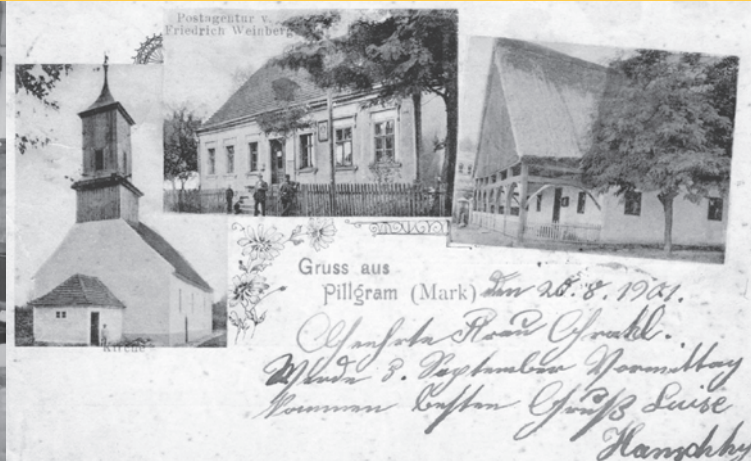 Postagentur v.
Friedrich Weinberg
Kirche
Gruss aus
Pillgram (Mark) den 26.8.1901.
Geehrte Frau Grahl.
Werde 3. September Vormittag
kommen besten Gruß Luise